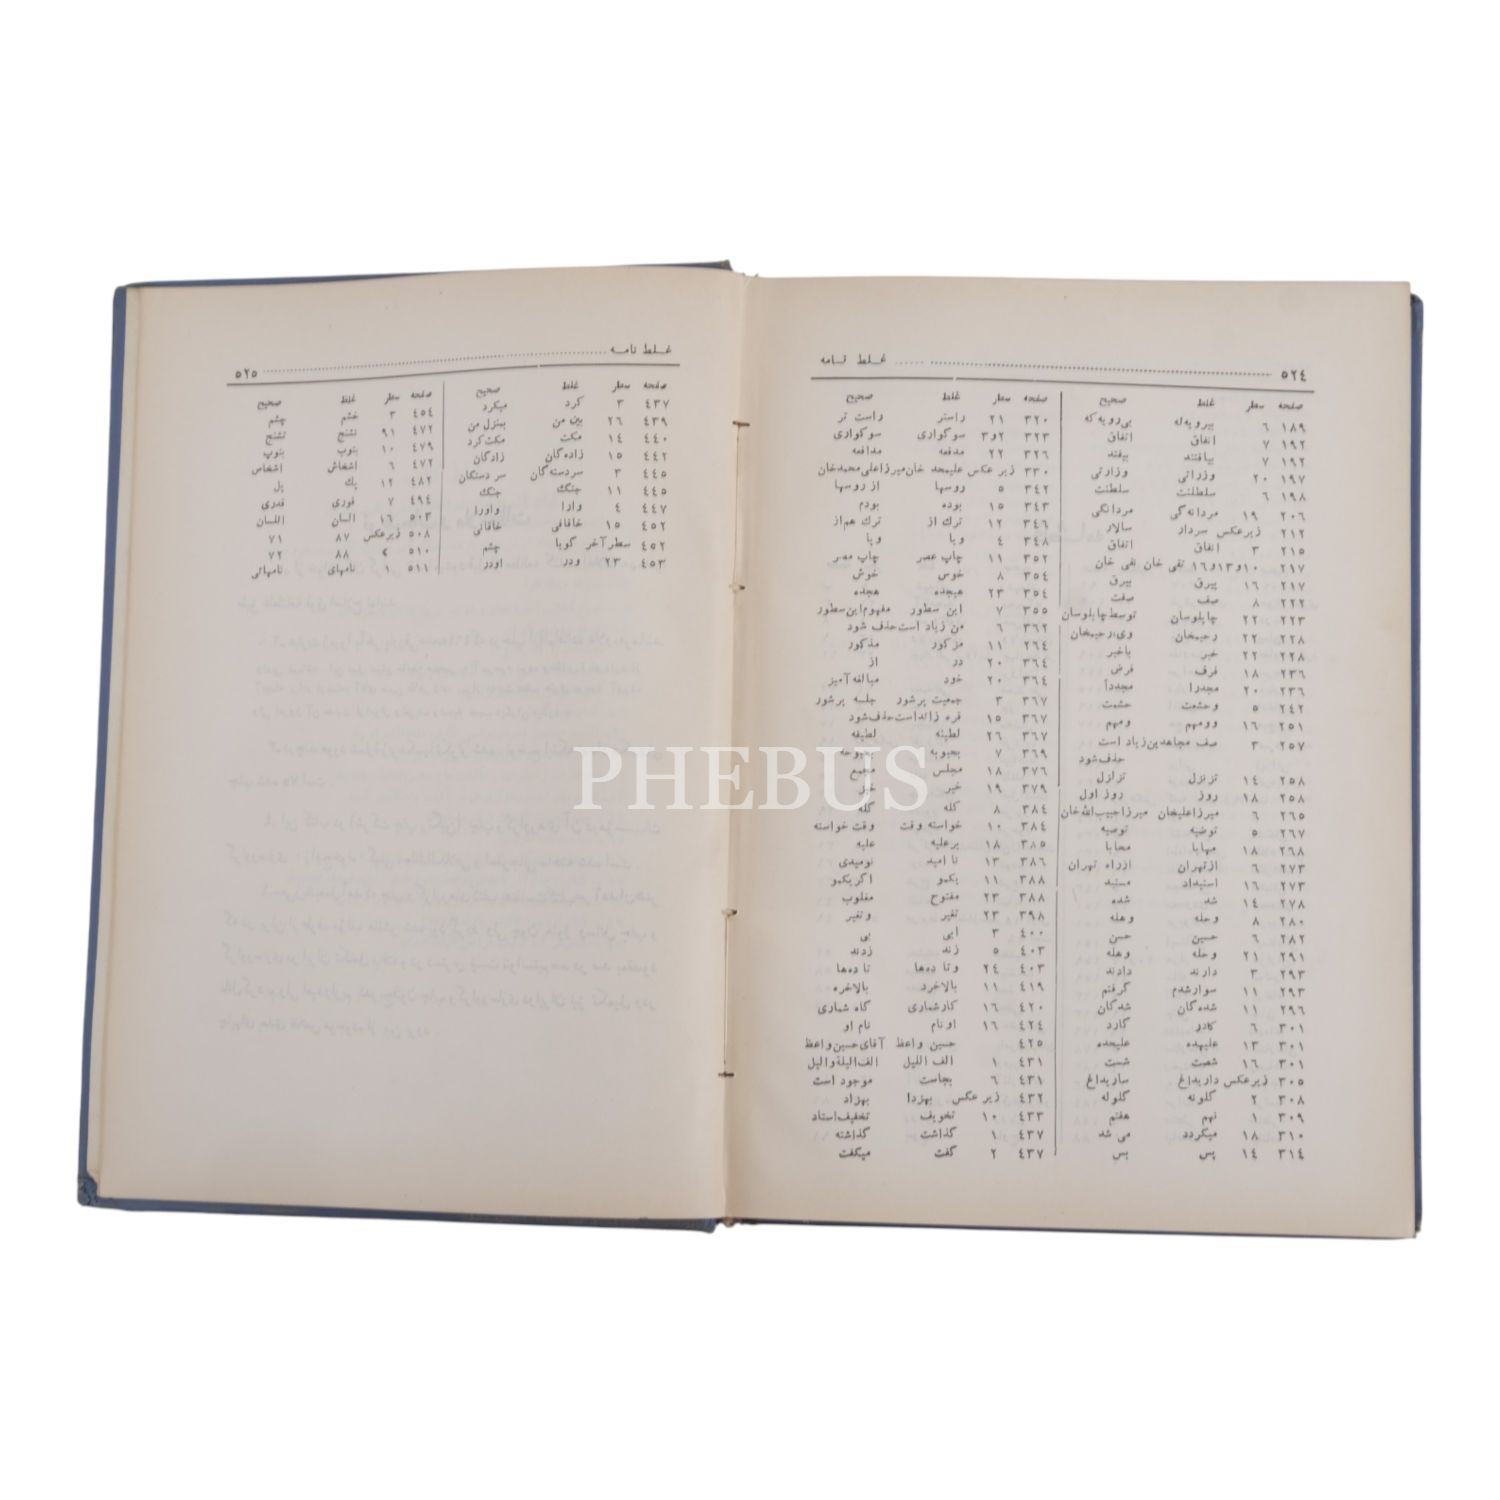 ٥٢٤ غلط نامه
صفحه سطر غلط صحیح
١٨٩ ٦ بیرویه‌له بی‌رویه که
١٩٢ ٧ اتفاق اتفاق
١٩٢ ٧ بیافتند بیفتد
١٩٧ ٢٠ وزراتی وزارتی
١٩٨ ٦ سلطلنت سلطنت
٢٠٦ ١٩ مردانه‌گی مردانگی
٢١٢ زیرعکس سردار سالار
٢١٥ ٣ اتفاق اتفاق
٢١٧ ١٠و١٣و١٦ تقی خان نقی خان
٢١٧ ١٦ بیرق بیرق
٢٢٢ ٨ صف صفت
٢٢٣ ٢٢ چاپلوسان توسط چاپلوسان
٢٢٨ ٢٢ رحیمخان وی‌ازرحیمخان
٢٢٨ ٢٢ خبر باخبر
٢٣٦ ١٨ فرف فرض
٢٣٦ ٢٠ مجدرا مجدداً
٢٤٢ ٥ وحشمت حشمت
٢٥١ ١٦ وومهم ومهم
٢٥٧ ٣ صف مجاهدین زیاد است
حذف شود
٢٥٨ ١٤ تزنزل تزلزل
٢٥٨ ١٨ روز روز اول
٢٦٥ ٦ میرزاعلیخان میرزاحبیب‌الله‌خان
٢٦٧ ٥ توضیه توصیه
٢٦٨ ١٨ مهابا محابا
٢٧٣ ٦ ازتهران ازراه تهران
٢٧٣ ١٦ استبداد مستبد
٢٧٨ ١٤ شد شده
٢٨٠ ٨ وحله وهله
٢٨٢ ٦ حسین حسن
٢٩١ ٢١ وحله وهله
٢٩٣ ٣ دارند دادند
٢٩٣ ١١ سوارشدم گرفتم
٢٩٦ ١١ شده‌گان شدگان
٣٠١ ٦ کادر گارد
٣٠١ ١٣ علیهده علیحده
٣٠١ ١٦ شصت شست
٣٠٥ زیرعکس داریداغ ساریداغ
٣٠٨ ٢ گلونه گلوله
٣٠٩ ١ نهم هفتم
٣١٠ ١٨ میگردد می شد
٣١٤ ١٤ پس پس
صفحه سطر غلط صحیح
٣٢٠ ٢١ راستر راست تر
٣٢٣ ٢و٣ سوکواری سوگواری
٣٢٦ ٢٢ مدفعه مدافعه
٣٣٠ زیرعکس علیمحد خان میرزاعلی محمدخان
٣٤٢ ٥ روسها از روسها
٣٤٣ ١٥ بوده بودم
٣٤٦ ١٢ ترك از ترك هم‌از
٣٤٨ ٤ وبا وبا
٣٥٢ ١١ چاپ عصر چاپ مصر
٣٥٤ ٨ خوس خوش
٣٥٤ ٢٣ هیجده هجده
٣٥٥ ٧ این سطور مفهوم‌این‌سطور
٣٦٢ ٦ من زیاد است حذف شود
٢٦٤ ١١ مزکور مذکور
٣٦٤ ٢٠ در از
٣٦٤ ٢٠ خود مبالغه‌آمیز
٣٦٧ ٣ جمعیت پرشور جلسه پرشور
٣٦٧ ١٥ قره زائداست‌حذف‌شود
٣٦٧ ٢٦ لطینه لطیفه
٣٦٩ ٧ بحبوبه بحبوحه
٣٧٦ ١٨ مجلس مجمع
٣٧٩ ١٩ خبر خبز
٣٨٤ ٨ کله کله
٣٨٤ ١٠ خواسته وقت وقت خواسته
٣٨٥ ١٨ برعلیه علیه
٣٨٦ ١٣ نا امید نومیدی
٣٨٨ ١١ یکمو اگریکمو
٣٨٨ ٢٣ مفتوح مغلوب
٣٩٨ ٢٣ تغیر وتغیر
٤٠٠ ٣ ابی بی
٤٠٣ ٥ زند زدند
٤٠٣ ٢٤ وتا ده‌ها تا ده‌ها
٤١٩ ١١ بالاخرد بالاخره
٤٢٠ ١٦ کارشماری گاه شماری
٤٢٤ ١٦ او نام نام او
٤٢٥ حسین واعظ آقای حسین واعظ
٤٣١ ١ الف اللیل الف‌اللیلة‌واللیل
٤٣١ ٦ بجاست موجود است
٤٣٢ زیرعکس بهزدا بهزاد
٤٣٣ ١٠ تخویف تخفیف‌استاد
٤٣٧ ١ گذاشت گذاشته
٤٣٧ ٢ گفت میگفت
غلط نامه ٥٢٥
صفحه سطر غلط صحیح
٤٣٧ ٣ کرد میکرد
٤٣٩ ٢٦ بین من بمنزل من
٤٤٠ ١٤ مکت مکث کرد
٤٤٢ ١٥ زاده‌گان زادگان
٤٤٥ ٣ سردسته‌گان سردستگان
٤٤٥ ١١ جنگ جنگ
٤٤٧ ٤ وارا واورا
٤٥٢ ١٥ خاقافی خاقانی
٤٥٢ سطرآخر گویا چشم
٤٥٣ ٢٣ ودر اودر
صفحه سطر غلط صحیح
٤٥٤ ٣ خشم چشم
٤٧٢ ٩١ نشنج تشنج
٤٧٩ ١٠ بنوب بنوپ
٤٧٢ ٦ اشغاش اشخاص
٤٨٢ ١٢ یك یل
٤٩٤ ٧ فوری قدری
٥٠٣ ١٦ السان اللسان
٥٠٨ زیرعکس ٨٧ ٧١
٥١٠ » ٨٨ ٧٢
٥١١ ١ نامهای نامهائی
PHEBUS